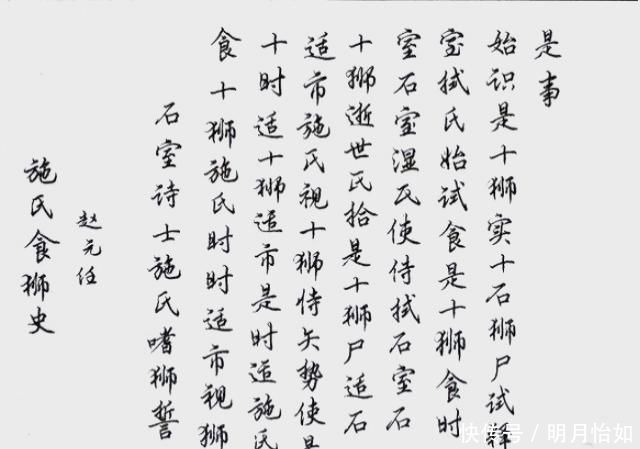 施氏食狮史
赵元任
石室诗士施氏嗜狮誓
食十狮施氏时时适市视狮
十时适十狮适市是时适施氏
适市施氏视十狮恃矢势使是
十狮逝世氏拾是十狮尸适石
室石室湿氏使侍拭石室石
室拭氏始试食是十狮食时
始识是十狮实十石狮尸试释
是事
快传号/明月怡如